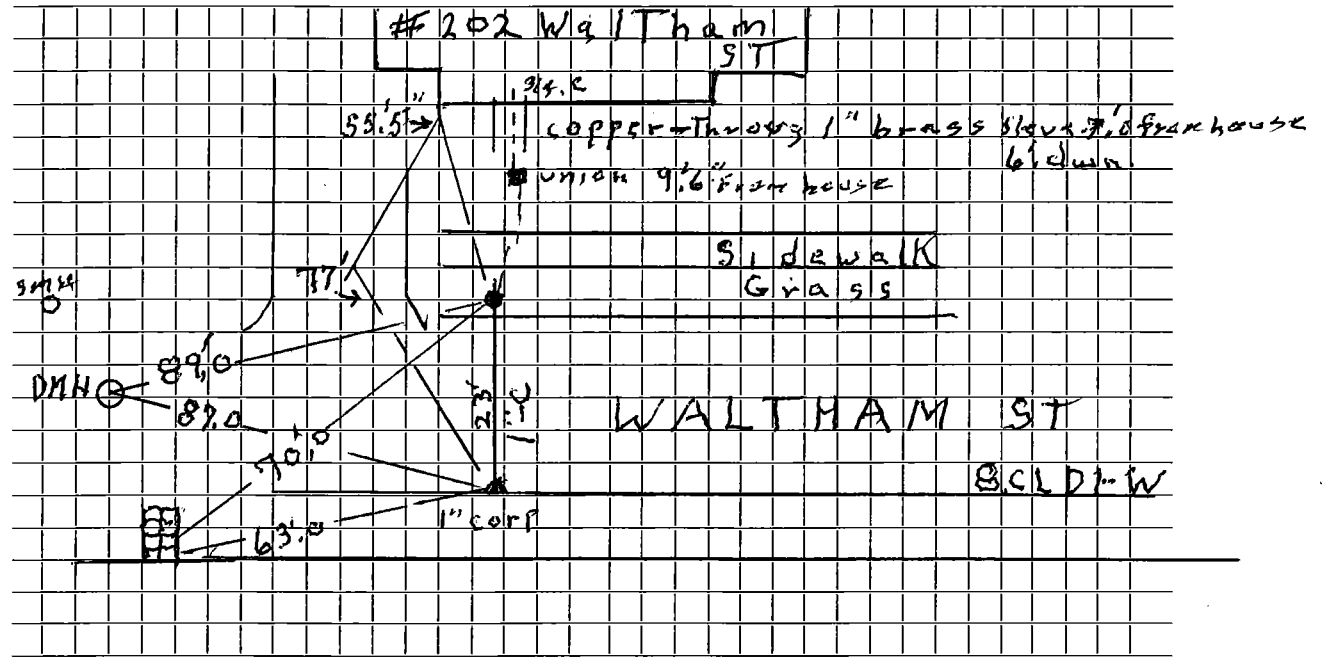 #202 WalTham
ST
3/4.C
55'.5"
copper-Throug 1" brass from house
6' down.
union 9'.6" From house
Sidewalk
Grass
77'
SMH
DMH
89'.0
87.0
70'.0
63'.0
23'
1"-C
WALTHAM ST
8.CLDI-W
1" corp